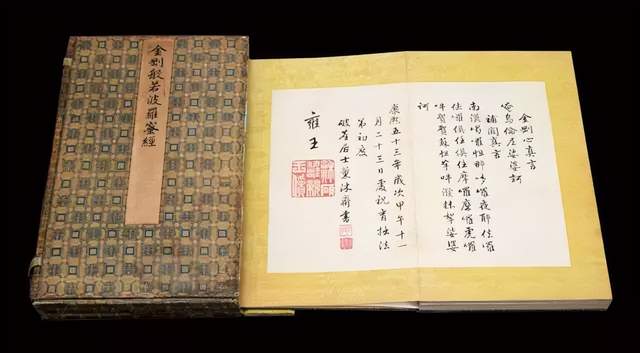 金剛般若波羅蜜經
金剛心真言
唵烏倫尼娑婆訶
補闕真言
南謨喝囉怛那哆囉夜耶佉囉
佉囉俱住俱住摩囉摩囉虎囉
吽賀賀蘇怛拏吽潑抹拏娑婆
訶
康熙五十三年歲次甲午十一
月二十三日慶祝育拙法
弟初度
破塵居士薰沐齋書
雍王